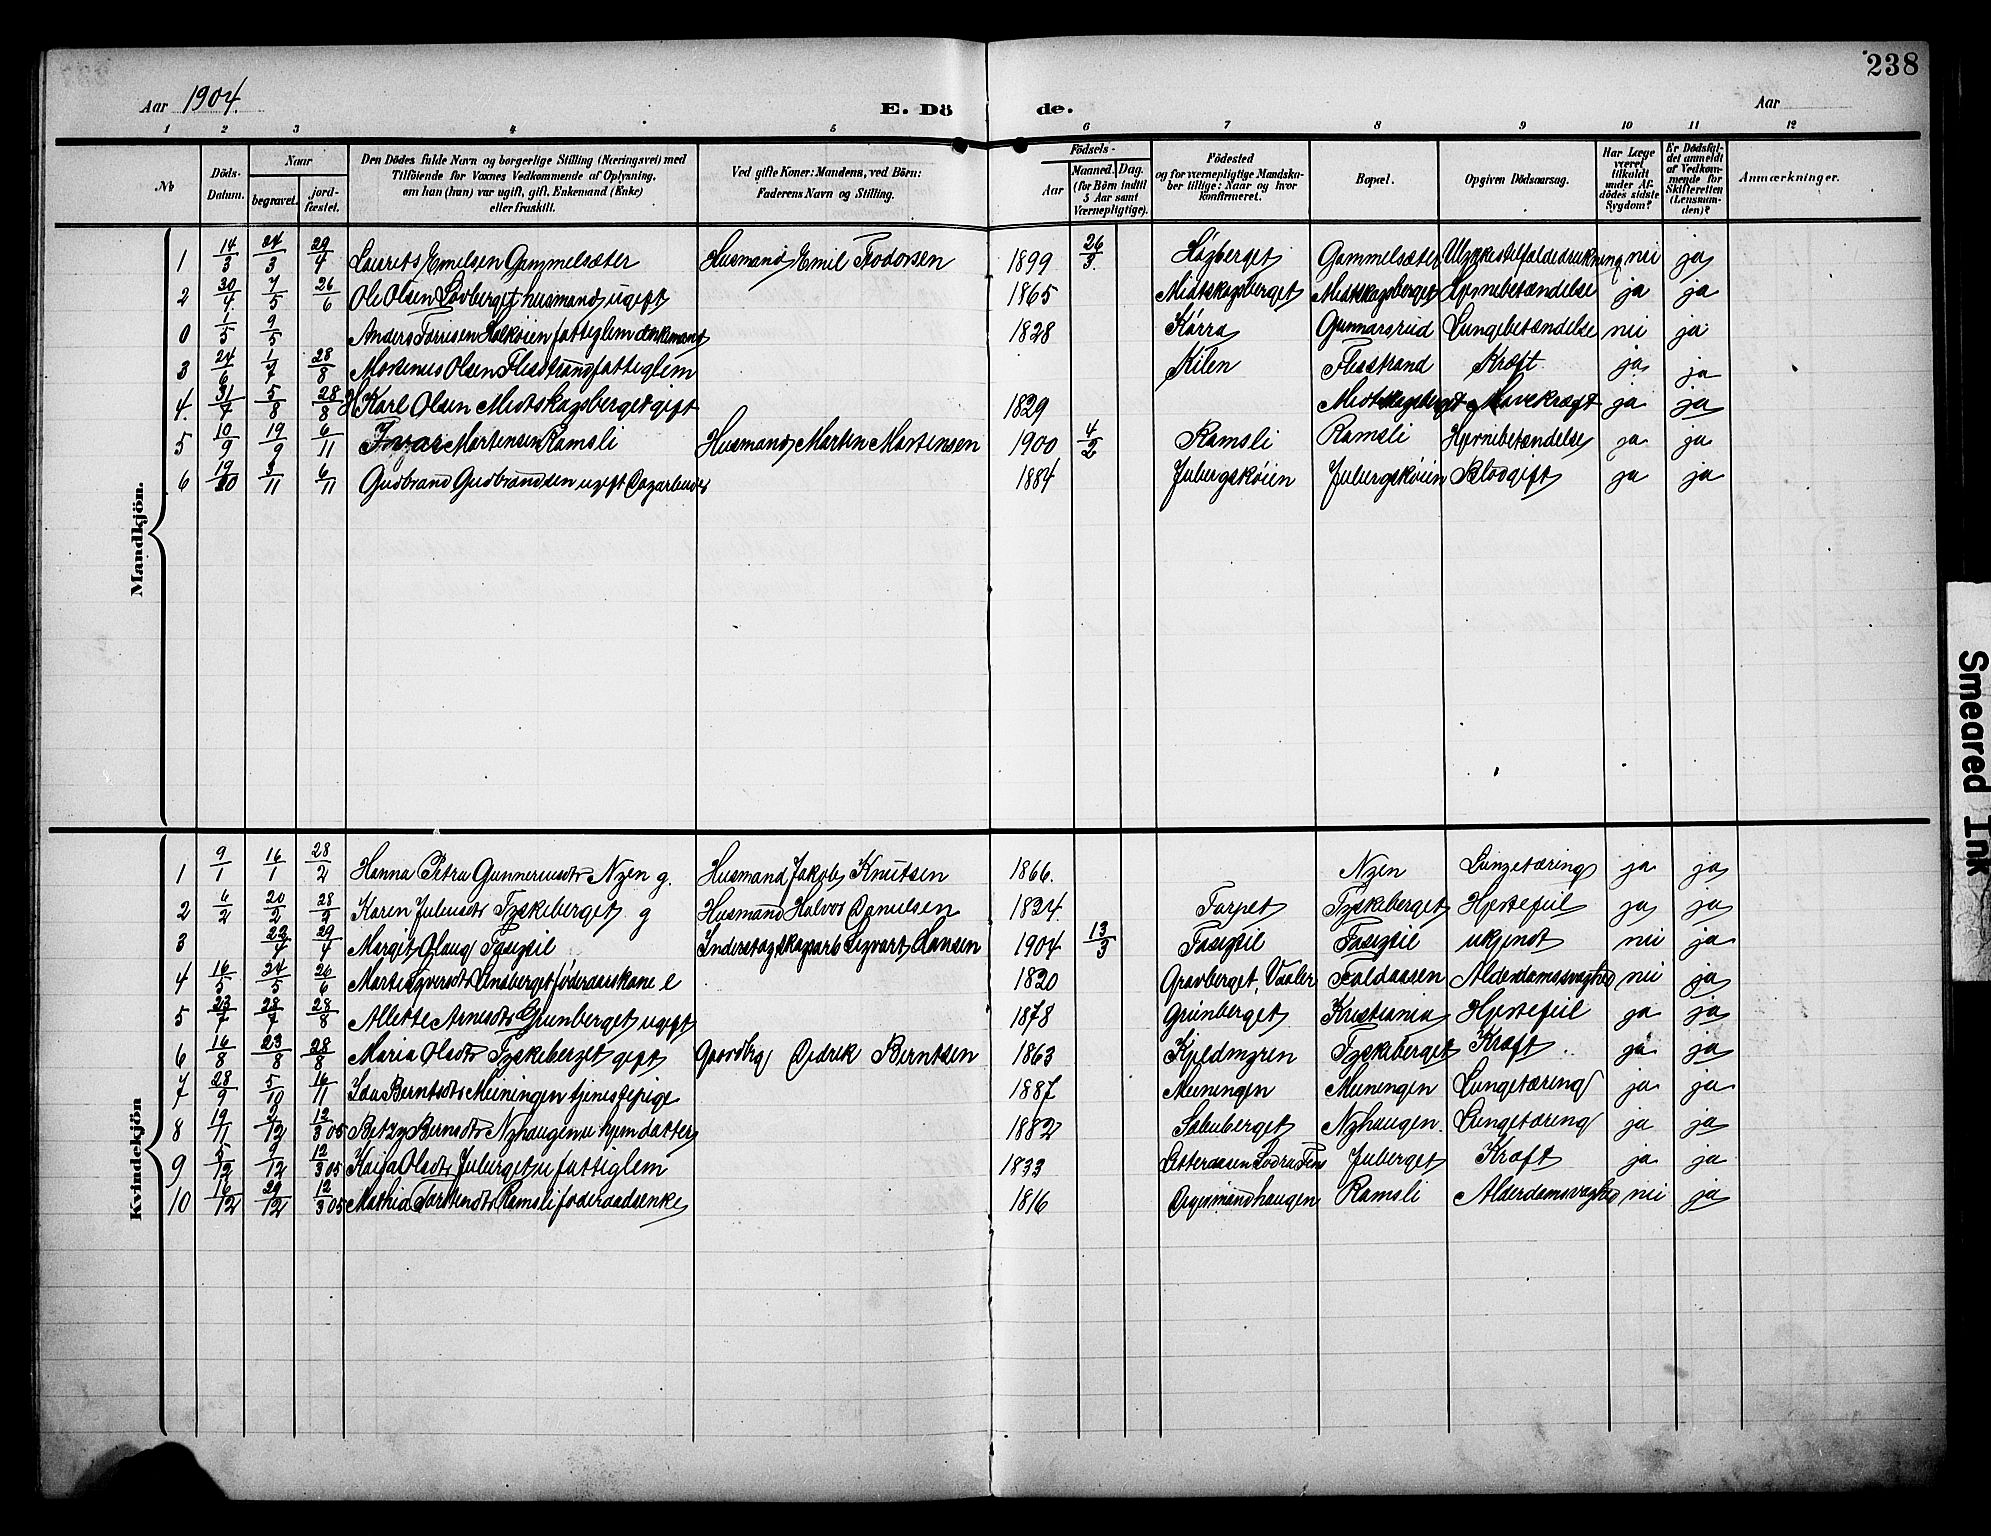 238
Aar 1904.
E. Dö de.
Aar
1 2 3 4 5 6 7 8 9 10 11 12
No
Döds-Datum.
Naar
begravet.
jord-fæstet.
Den Dödes fulde Navn og borgerlige Stilling (Næringsvei) med
Tilföiende for Voxnes Vedkommende af Oplysning,
om han (hun) var ugift, gift, Enkemand (Enke)
eller fraskilt.
Ved gifte Koner: Mandens, ved Börn:
Faderens Navn og Stilling.
Födsels-
Aar
Maaned. Dag.
(for Börn indtil
5 Aar samt
Værnepligtige).
Födested
og for værnepligtige Mandska-
ber tillige: Naar og hvor
konfirmeret.
Bopæl.
Opgiven Dödsaarsag.
Har Læge
været
tilkaldt
under Af-
dödes sidste
Sygdom?
Er Dödsfal-
det anmeldt
af Vedkom-
mende for
Skifteretten
(Lensman-
den)?
Anmærkninger.
Mandkjön.
1 14/3 24/3 29/4 Laurits Emilsen Gammelsæter Husmand Emil Trodorsen 1899 26/3. Høgberget Gammelsæter nei ja
2 30/4. 7/5 26/6 Ole Olsen Løvberget husmand ugift 1865 Midtskogsberget Midtskogsberget Hjernebetændelse ja ja
0 1/5 9/5 Anders fattiglem enkemand 1828 Kårra Gunnarsrud Lungebetændelse nei ja
3 24/6 1/7 28/8 Mortenius Olsen Flisstrand fattiglem Kilen Flisstrand Kræft ja ja
4. 31/7 5/8 28/8 Karl Olsen Midtskogsberget gift 1829 Midtskogsberget Mavekræft ja ja
5 10/9 19/9 6/11 Ivar Martensen Ramsli Husmand Martin Martensen 1900 4/2 Ramsli Ramsli Hjernebetændelse ja ja
6 19/10 3/11 6/11 Gudbrand Gudbrandsen ugift Dagarbeider 1884 Julbergskøien Julbergskøien Blodgift ja ja
Kvindekjön
1 9/1 16/1 28/2 Hanna Petra Gunneriusdtr Nyen g. Husmand Jakob Knutsen 1866. Nyen Lungetæring ja ja
2 6/2 20/2 28/2 Karen Juliusdtr Tyskeberget g Husmand Halvor 1824. Torpet Tyskeberget Hjertefeil ja ja
3 22/4 29/4 Margit Olaug Sigvart Hansen 1904 13/3 ukjendt nei ja
4 16/5 24/5 26/6 Marte føderaadskone e 1820 Gravberget, Vaaler Foldaasen Alderdomssvaghed nei ja
5 23/7 28/7 28/8 Allette Arnesdtr Grünberget ugift 1878 Grünberget Kristiania Hjertefeil ja ja
6 16/8 23/8 28/8 Maria Olsdtr Tyskeberget gift Gaardbr Didrik Berntsen 1863 Kjeldmyren Tyskeberget Kræft ja ja
7 28/9 5/10 16/11 Ida Berntsdtr Meiningen tjenestepige 1887 Meiningen Meiningen Lungetæring ja ja
8 19/11 2/12 12/3 05 Betzy Berntsdtr Nyhaugen u hjemdatter 1882 Søbuberget Nyhaugen. Lungetæring ja ja
9 5/12 9/12 12/3 05 Kaisa Olsdtr Julberget u fattiglem 1833 Julberget Kræft ja ja
10 16/12 29/12 12/3 05 Mathea Torstendtr Ramsli føderaadsenke 1816 Ramsli Alderdomssvaghed nei ja
Smeared Ink